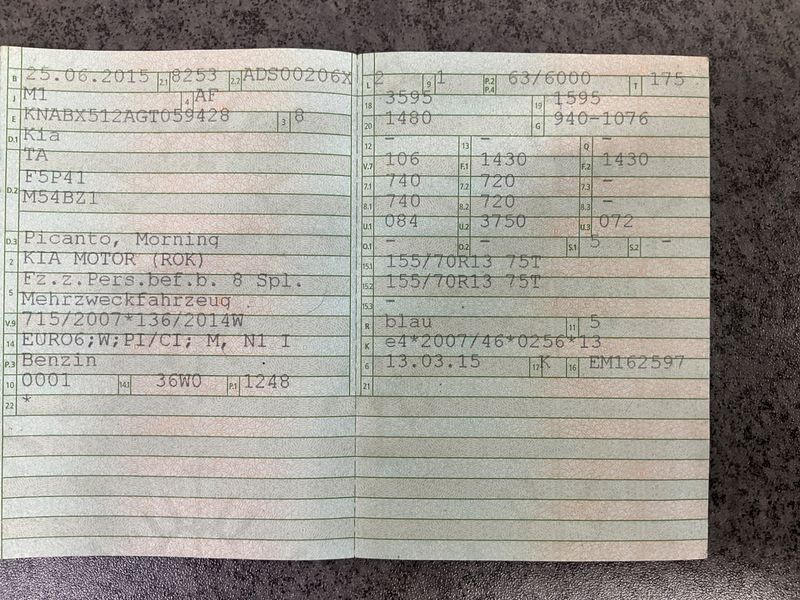 B 25.06.2015 2.1 8253 2.2 ADS00206X
J M1 4 AF
E KNABX512AGT059428 3 8
D.1 Kia
TA
D.2 F5P41
M54BZ1
D.3 Picanto, Morning
2 KIA MOTOR (ROK)
5 Fz.z.Pers.bef.b. 8 Spl.
Mehrzweckfahrzeug
V.9 715/2007*136/2014W
14 EURO6;W;PI/CI; M, N1 I
P.3 Benzin
10 0001 14.1 36W0 P.1 1248
22 *
L 2 9 1 P.2 P.4 63/6000 T 175
18 3595 19 1595
20 1480 G 940-1076
12 - 13 - Q -
V.7 106 F.1 1430 F.2 1430
7.1 740 7.2 720 7.3 -
8.1 740 8.2 720 8.3 -
U.1 084 U.2 3750 U.3 072
O.1 - O.2 - S.1 5 S.2 -
15.1 155/70R13 75T
15.2 155/70R13 75T
15.3 -
R blau 11 5
K e4*2007/46*0256*13
6 13.03.15 17 K 16 EM162597
21